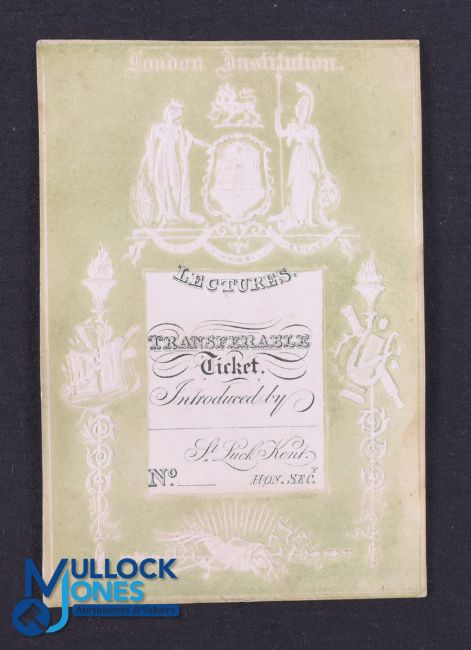 London Institution.
LECTURES.
TRANSFERABLE
Ticket.
Introduced by
St. Luck Kent.
No.
HON. SECY.
MULLOCK
JONES
Auctioneers & Valuers